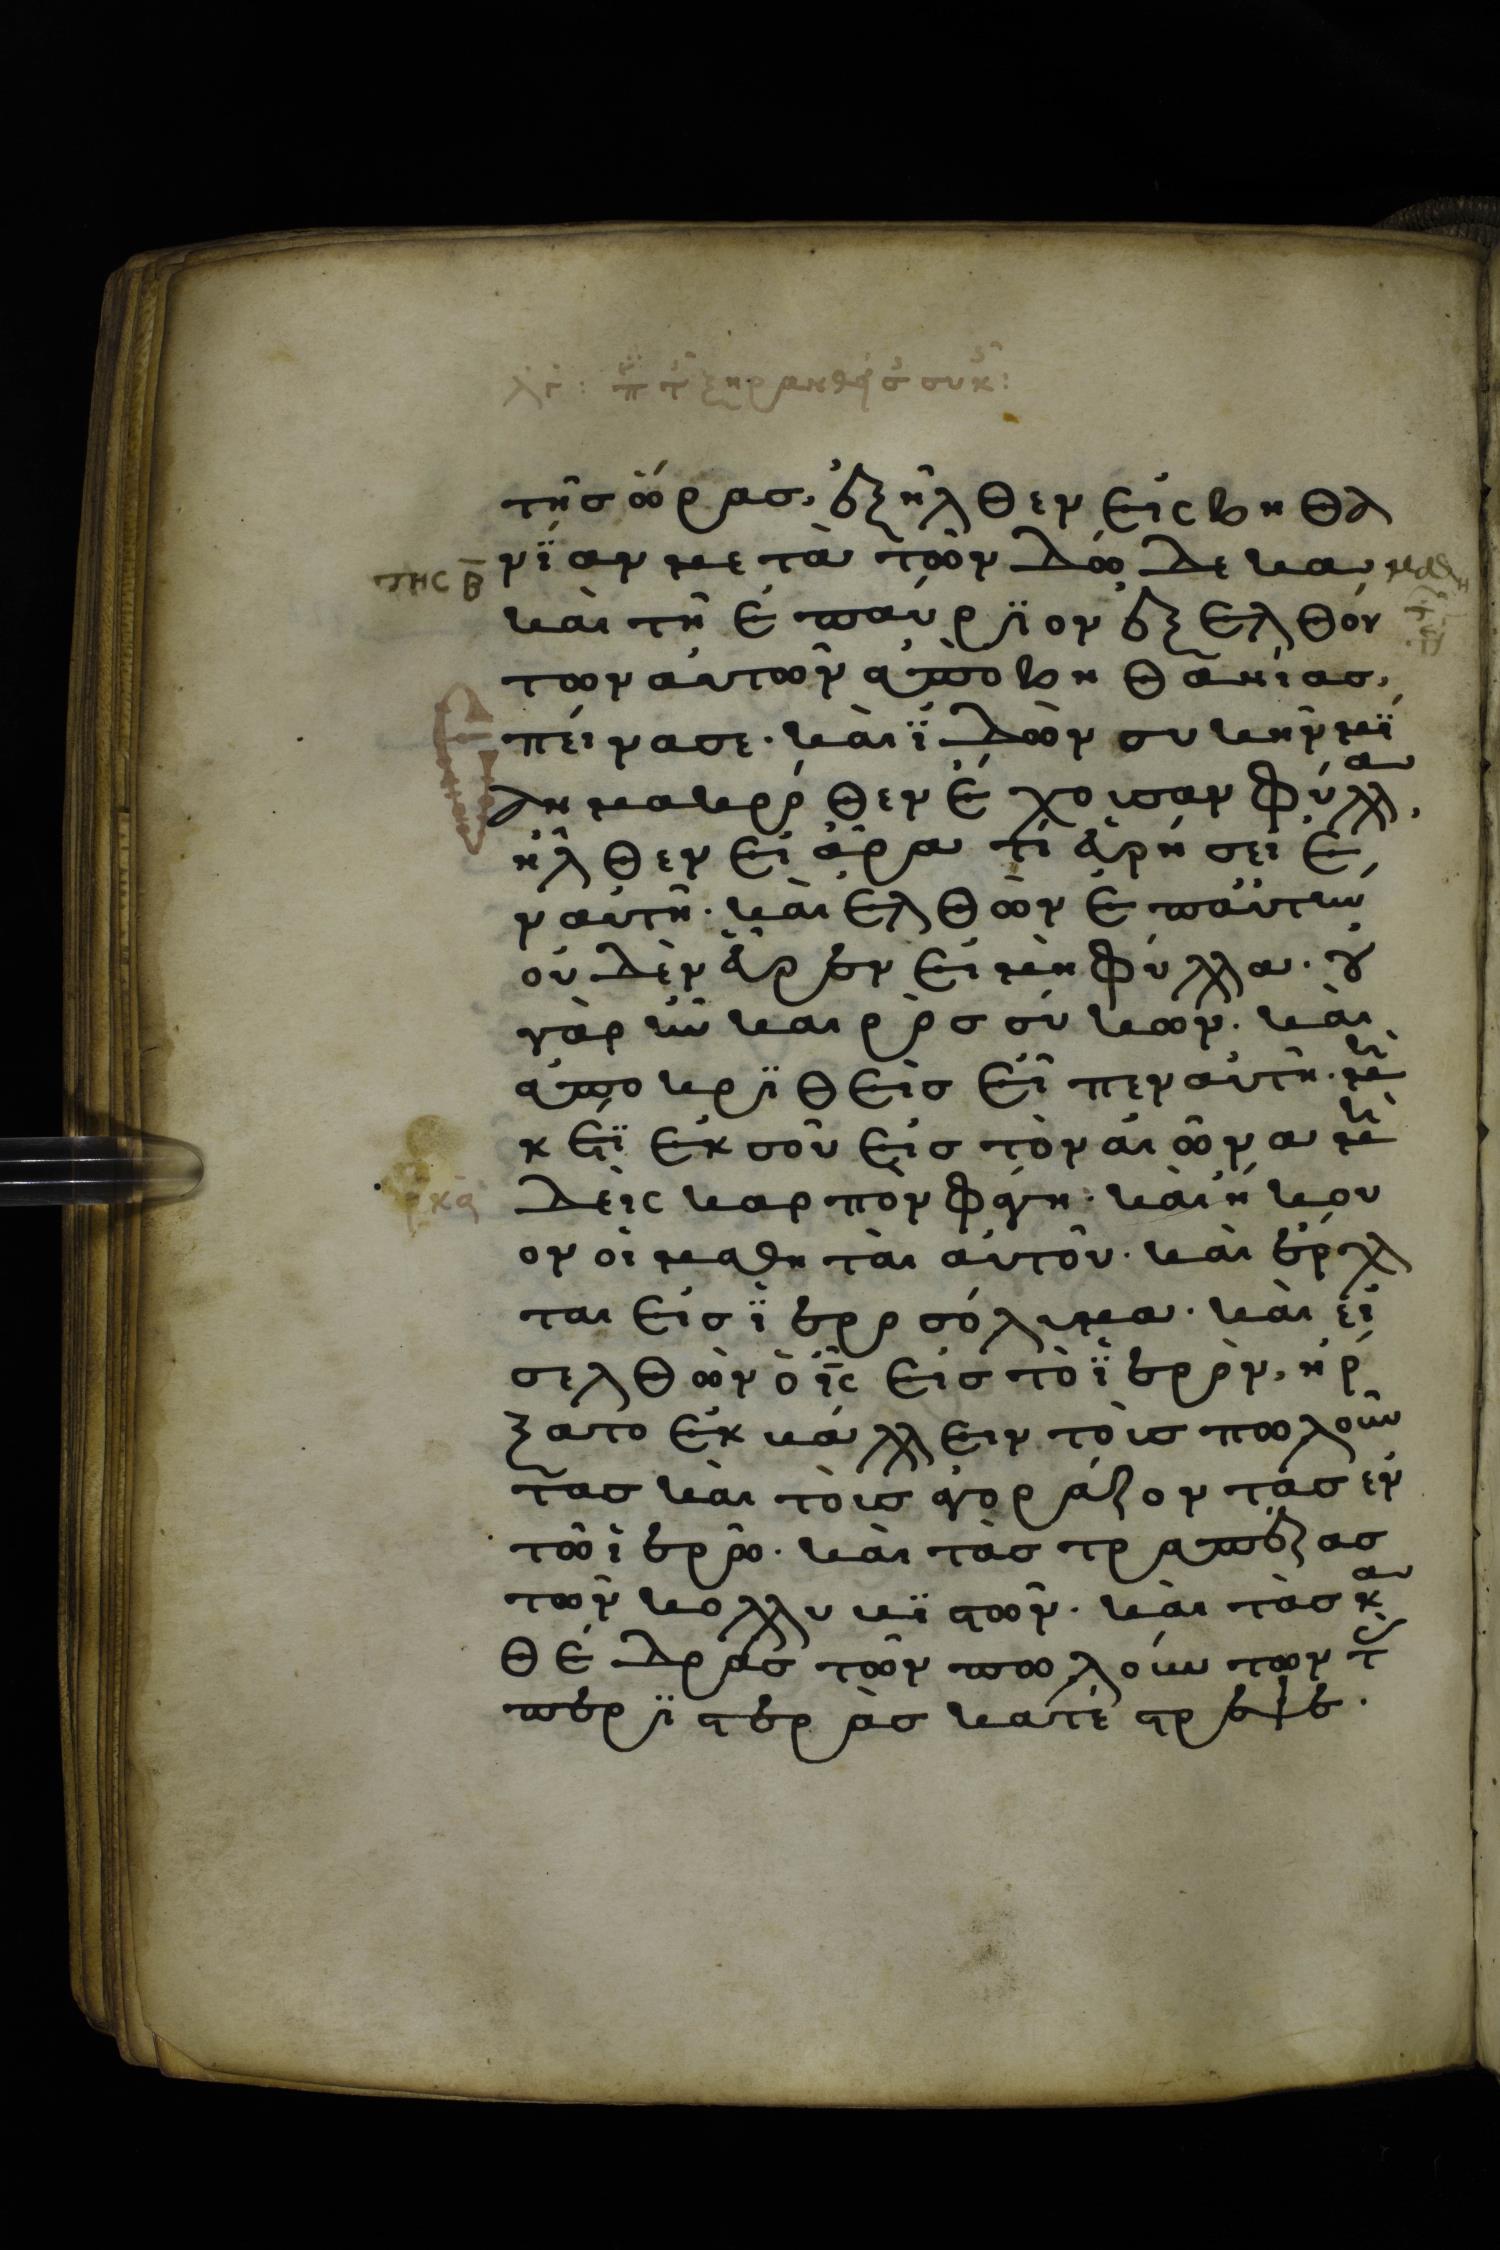 τῆσ ὥρασ, ἐξῆλθεν εἰς βηθα
νΐαν μετὰ τῶν δώδεκα
τῆς β̅
καὶ τῆ ἐπαύρϊον ἐξελθόν
των αὐτῶν ἀπο βηθανίασ,
ἐπείνασε. καὶ ϊδὼν συκῆν μϊ
αν μακρόθεν ἔχουσαν φύλλα,
ἦλθεν εἰ ἄρα τί εὑρήσει ἐ
ν αὐτῆ. καὶ ἐλθὼν ἐπ αὐτὴν
οὐδὲν εὗρεν εἰ μὴ φύλλα. οὐ
γὰρ ἦν καιρὸσ σύκων. καὶ
ἀποκρϊθεὶσ εἶπεν αὐτῆ. μη
κέτϊ ἐκ σοῦ εἰσ τὸν αἰῶνα μη
δεὶς καρπὸν φάγη. καὶ ἤκου
ον οἱ μαθηταὶ αὐτοῦ. καὶ ἔρχον
ται εἰσ ϊεροσόλυμα. καὶ εἰ
σελθὼν ὁ ι̅ς̅ εἰσ τὸ ϊερὸν, ἤρ
ξατο ἐκβάλλειν τοὺσ πωλοῦν
τασ καὶ τοὺσ ἀγοράζοντασ ἐν
τῶ ἱερῶ. καὶ τὰσ τραπέζασ
τῶν κολλυβϊστῶν. καὶ τὰσ κα
θέδρασ τῶν πωλούντων τὰς
περϊστερὰσ κατέστρεψε.